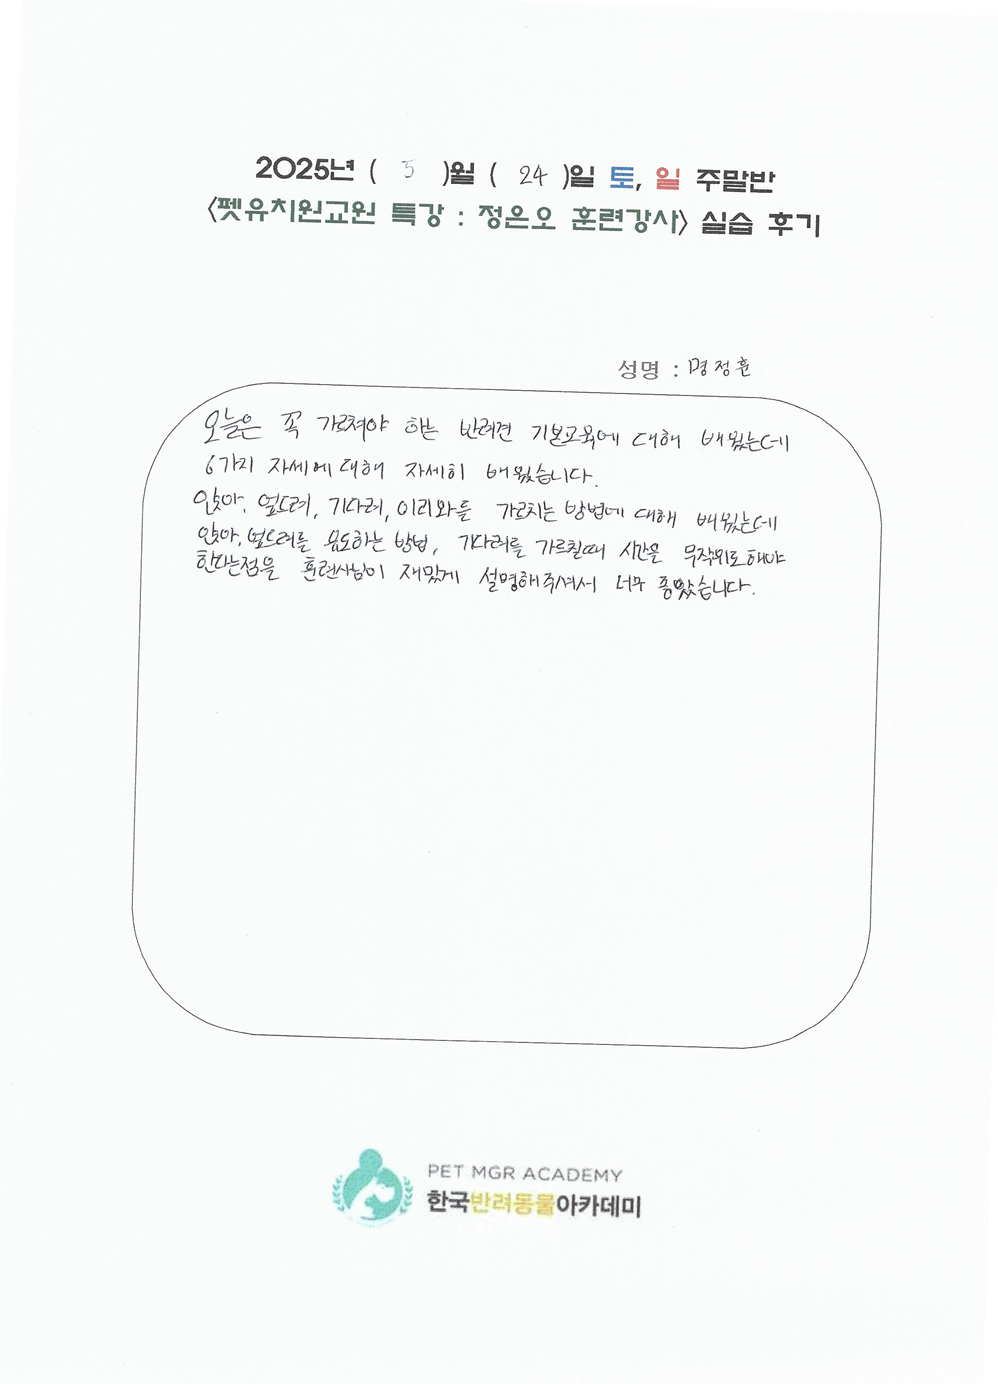 2025년 ( 5 )월 ( 24 )일 토, 일 주말반
<펫유치원교원 특강 : 정은오 훈련강사> 실습 후기
성명 : 명정훈
오늘은 꼭 가르쳐야 하는 반려견 기본교육에 대해 배웠는데
6가지 자세에 대해 자세히 배웠습니다.
앉아, 엎드려, 기다려, 이리와를 가르치는 방법에 대해 배웠는데
앉아, 엎드려를 유도하는 방법, 기다려를 가르칠때 시간을 무작위로 해야
한다는점을 훈련사님이 재밌게 설명해주셔서 너무 좋았습니다.
PET MGR ACADEMY
한국반려동물아카데미